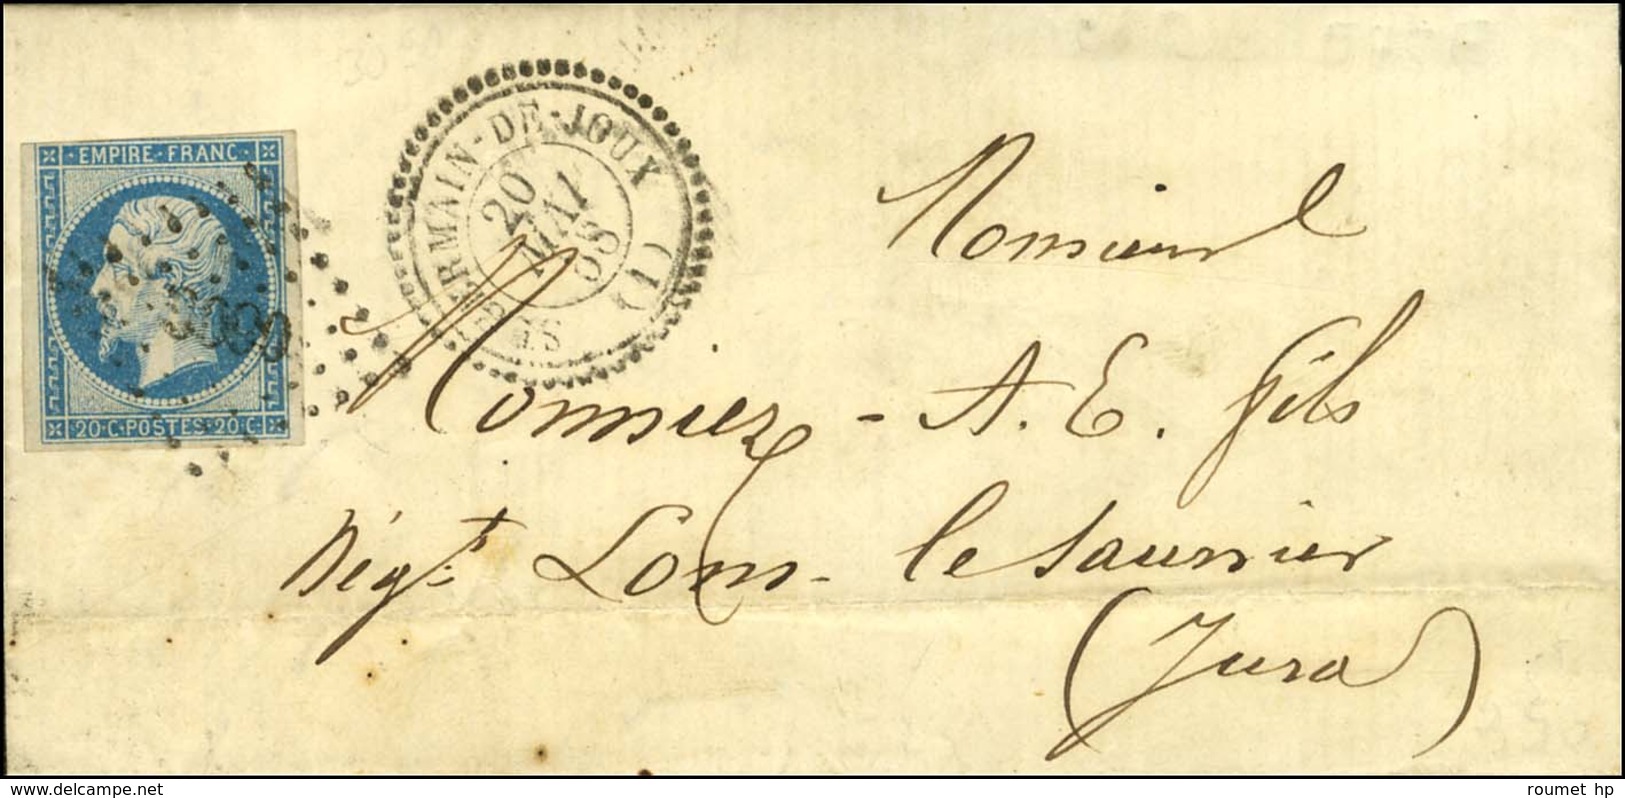 EMPIRE · FRANC ·
20 · C · POSTES · 20 · C ·
ST-GERMAIN-DE-JOUX
20
MAI
68
(1)
Monsieur
Monnier - A. E. fils
Négt. Lons - le Saunier
(Jura)
roumet hp